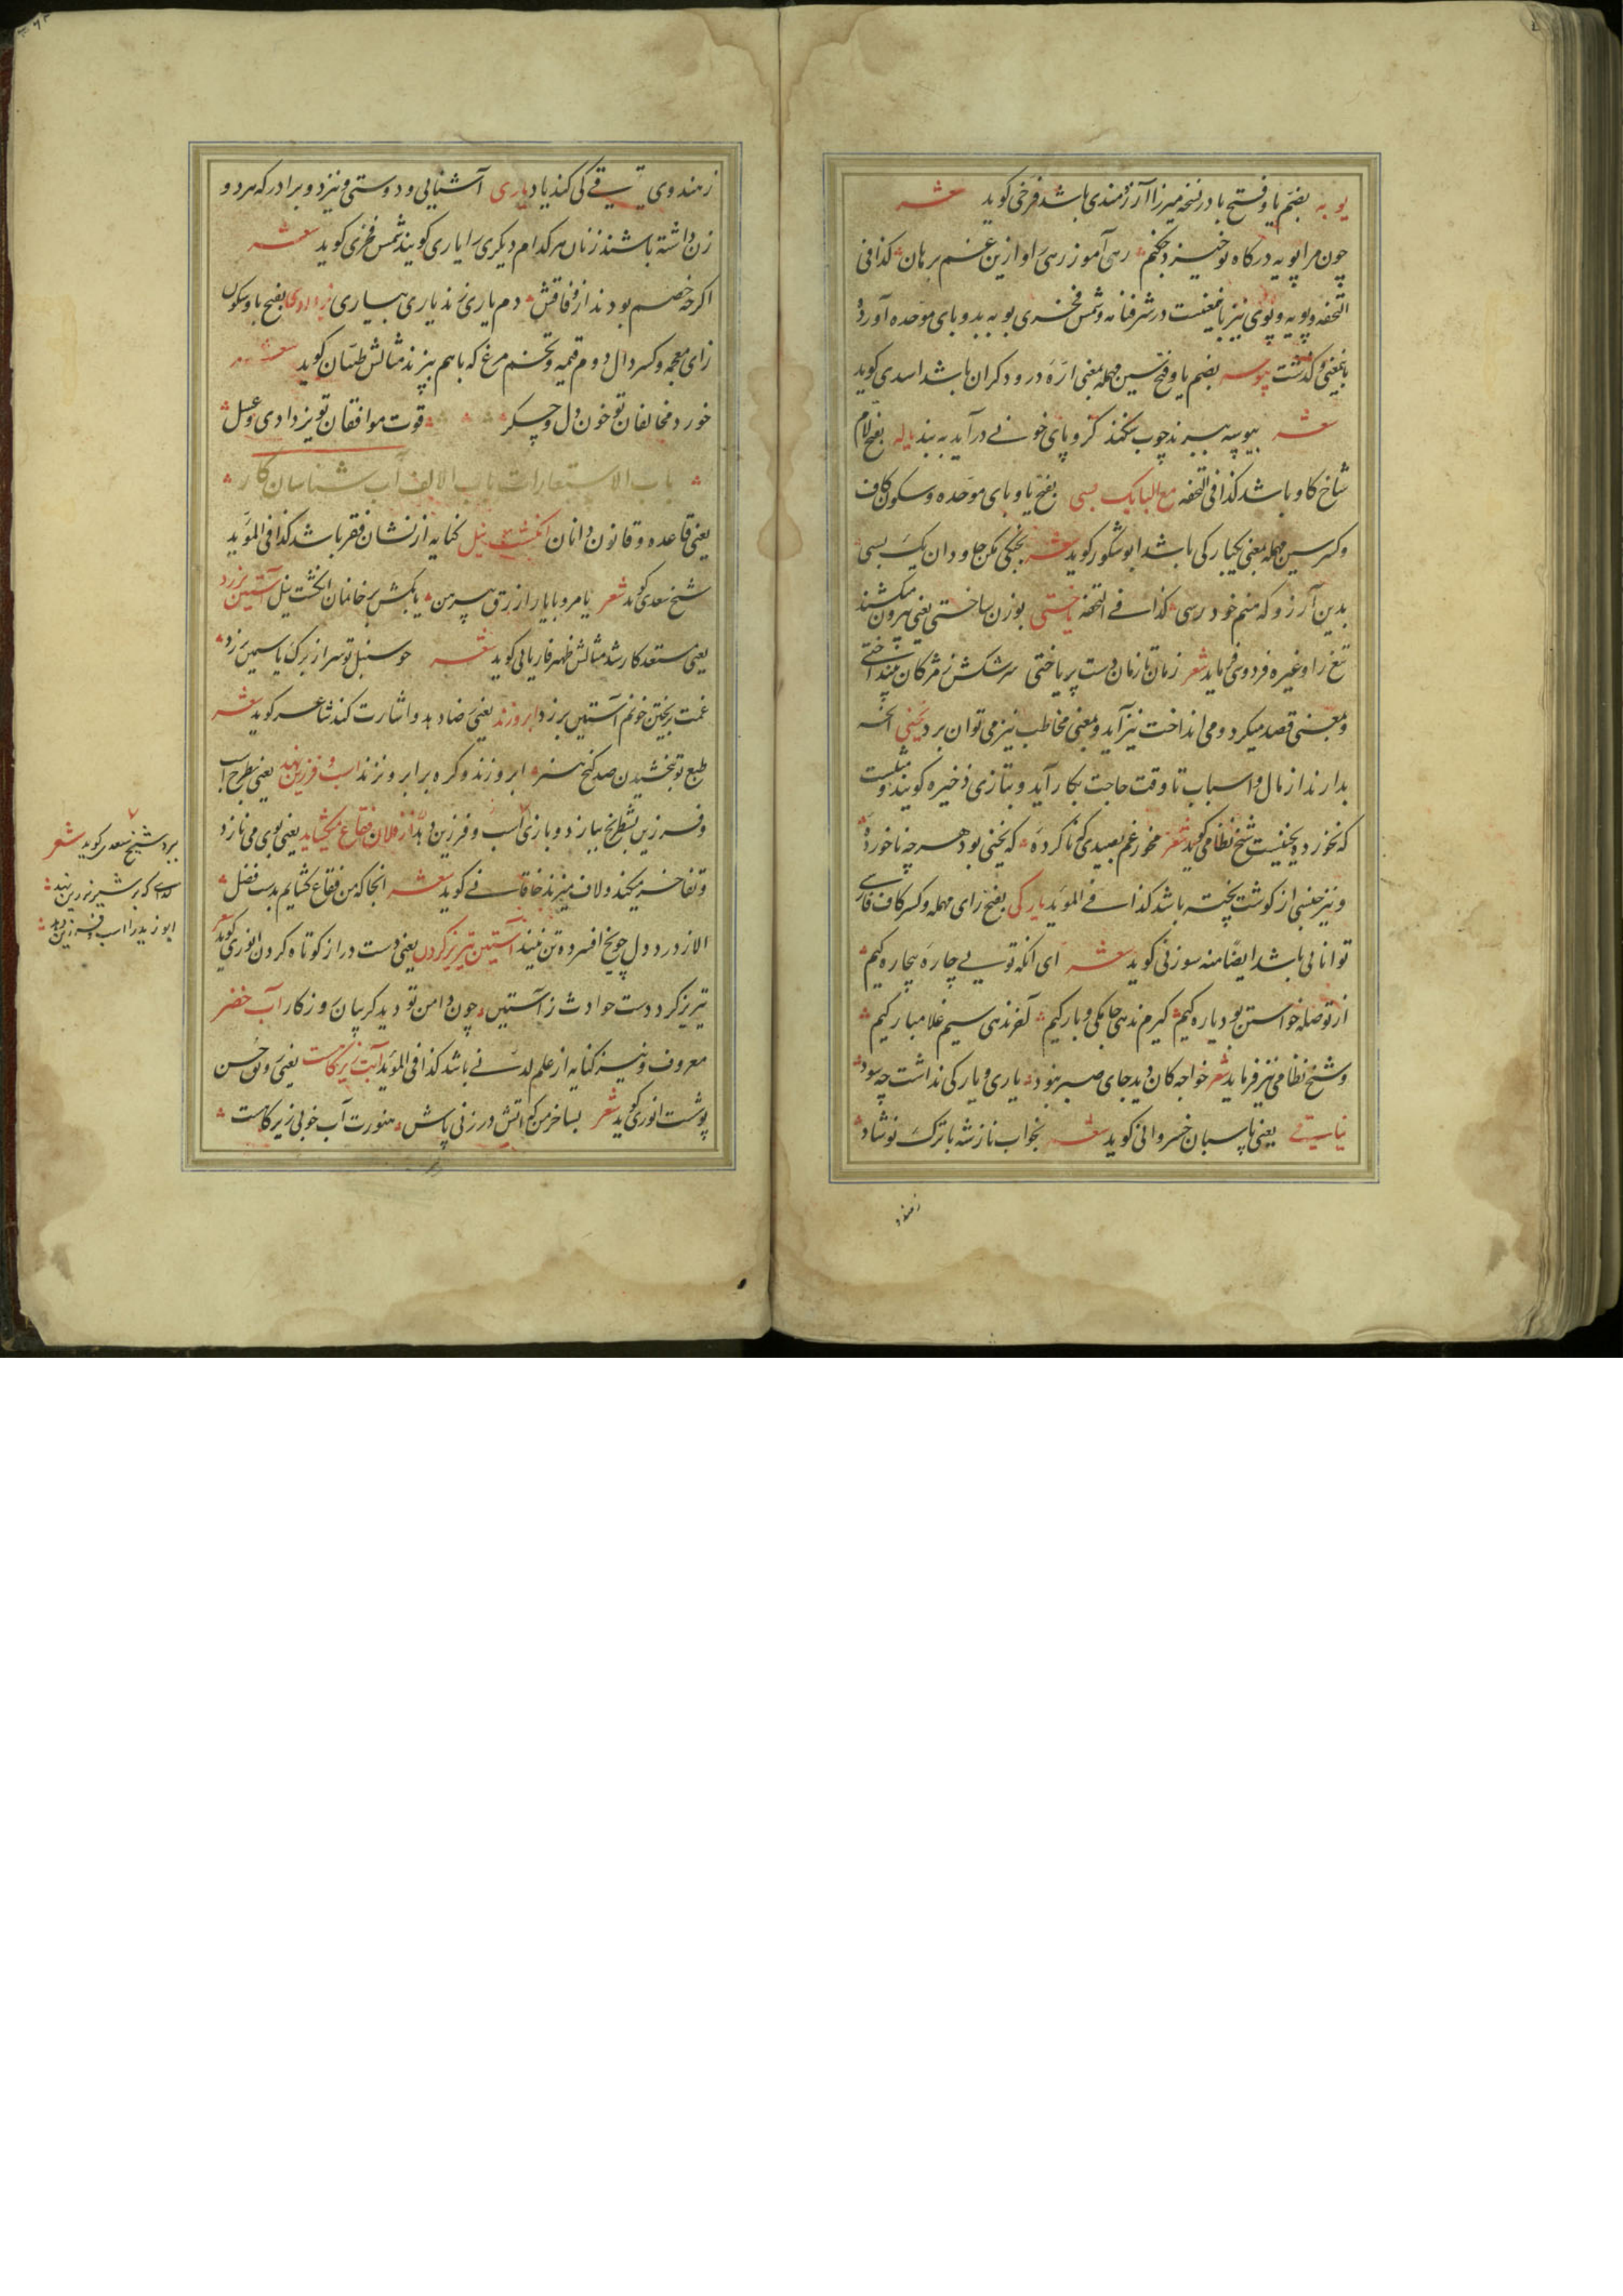 یوبه بضم یا و فتح با در نسخه میرزا آرزومندی باشد فرخی کوید شعر
چون مرا یوبه درکاه تو خیزد چکنم رهی آموز رهی را و ازین غم برهان کذا فی
التحفه و پویه و یوی نیز باینمعنیست در شرفنامه و شمس فخری یوبه بدو بای موحده آورده
باینمعنی و کذشت یوسه بضم یا و فتح سین مهمله بمعنی اره درودکران باشد اسدی کوید
شعر بیوسه ببرند چوب کر و پای خونی درآید به بند یاله بفتح لام
شاخ کاو باشد کذا فی التحفه مع الیا یک بسی بفتح یا و بای موحده و سکون کاف
و کسر سین مهمله بمعنی یکبارکی باشد ابو شکور کوید شعر مکن جاودان یک بسی
بدین آرزو که منم خود رسی کذا فی التحفه یاختی بوزن ساختی یعنی بیرون میکشند
تیغ را و غیره فردوسی فرماید شعر زمان تا زمان دست بریاختی سرشکش ز مژکان بینداختی
و بمعنی قصد میکرد و می انداخت نیز آید و بمعنی مخاطب نیز می توان برد یخنی آنچه
بدارند از مال و اسباب تا وقت حاجت بکار آید و بتازی ذخیره کویند و مثلست
که نخورد و یخنیست شیخ نظامی کوید شعر مخور غم بصیدی که ناکرده که یخنی بود هر چه ناخورده
و نیز جنسی از کوشت پخته باشد کذا فی المؤید یارکی بفتح رای مهمله و کسر کاف فارسی
توانایی باشد ایضا منه سوزنی کوید شعر ای آنکه تو یی چاره بیچاره کیم
از تو صله خواستن بود یاره کیم کیرم ندهی جامکی و بارکیم آخر ندهی سیم غلامبارکیم
و شیخ نظامی نیز فرماید شعر خواجه کان دید جای صبر نبود یاری و یارکی نداشت چه سود
یتاقی یعنی پاسبان خسروانی کوید شعر بخواب نازشه با ترک نوشاد
زهندو
زهندوی یتاقی کی کند یاد یاری آشنایی و دوستی و نیز دو برادر که هر دو
زن داشته باشند زنان هر کدام دیکری را یاری کویند شمس فخری کوید شعر
اکرچه خصم بودند از وفاقش دم یاری زند یاری بیاری یزدادی بفتح یا و سکون
زای معجمه و کسر دال دوم قیمه و تخم مرغ که باهم بپزند مثالش طیان کوید شعر
خورد مخالفان تو خون دل و جکر قوت موافقان تو یزدادی و عسل
باب الاستعارات باب الالف آب شناسان کار
یعنی قاعده و قانون دانان انکشت نیل کنایه از نشان فقر باشد کذا فی المؤید
شیخ سعدی کوید شعر یا مرو با یار ازرق پیرهن یا بکش بر خانمان انکشت نیل آستین برزد
یعنی مستعد کار شد مثالش ظهیر فاریابی کوید شعر چو سنبل تو سر از برک یاسمین برزد
غمت بریختن خونم آستین برزد ابرو زند یعنی رضا دهد و اشارت کند شاعر کوید شعر
طبع تو بخشیدن صد کنج هنر ابرو زند و کره بر ابرو نزند اسب و فرزین نهد یعنی بطرح اسب
و فرزین شطرنج ببازد و بازی اسب و فرزین دهد از فلان فقاع میکشاید یعنی بوی می نازد
و تفاخر میکند و لاف میزند خاقانی کوید شعر آنجا که من فقاع کشایم بدست فضل
الا ز درد دل چو یخ افسرده تن نیند آستین تیریز کردن یعنی دست دراز کوتاه کردن انوری کوید شعر
تیریز کرد دست حوادث ز آستین چون دامن تو دید کریبان روزکار آب خضر
معروف و نیز کنایه از علم لدنی باشد کذا فی المؤید آبت زیر کاهست یعنی رونق حسن
پوشت انوری کوید شعر بسا خرمن که آتش در زنی باش هنورت آب خوبی زیر کاهست
برد شیخ سعدی کوید شعر
کدای که بر شیر نر زین نهد
ابو زید را اسب و فرزین دهد